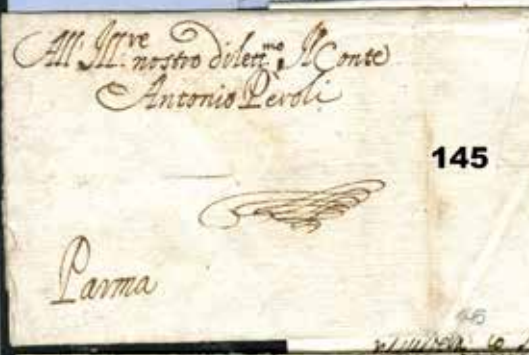 All' Ill.re nostro dilett.mo Il Conte
Antonio Pèroli
145
Parma